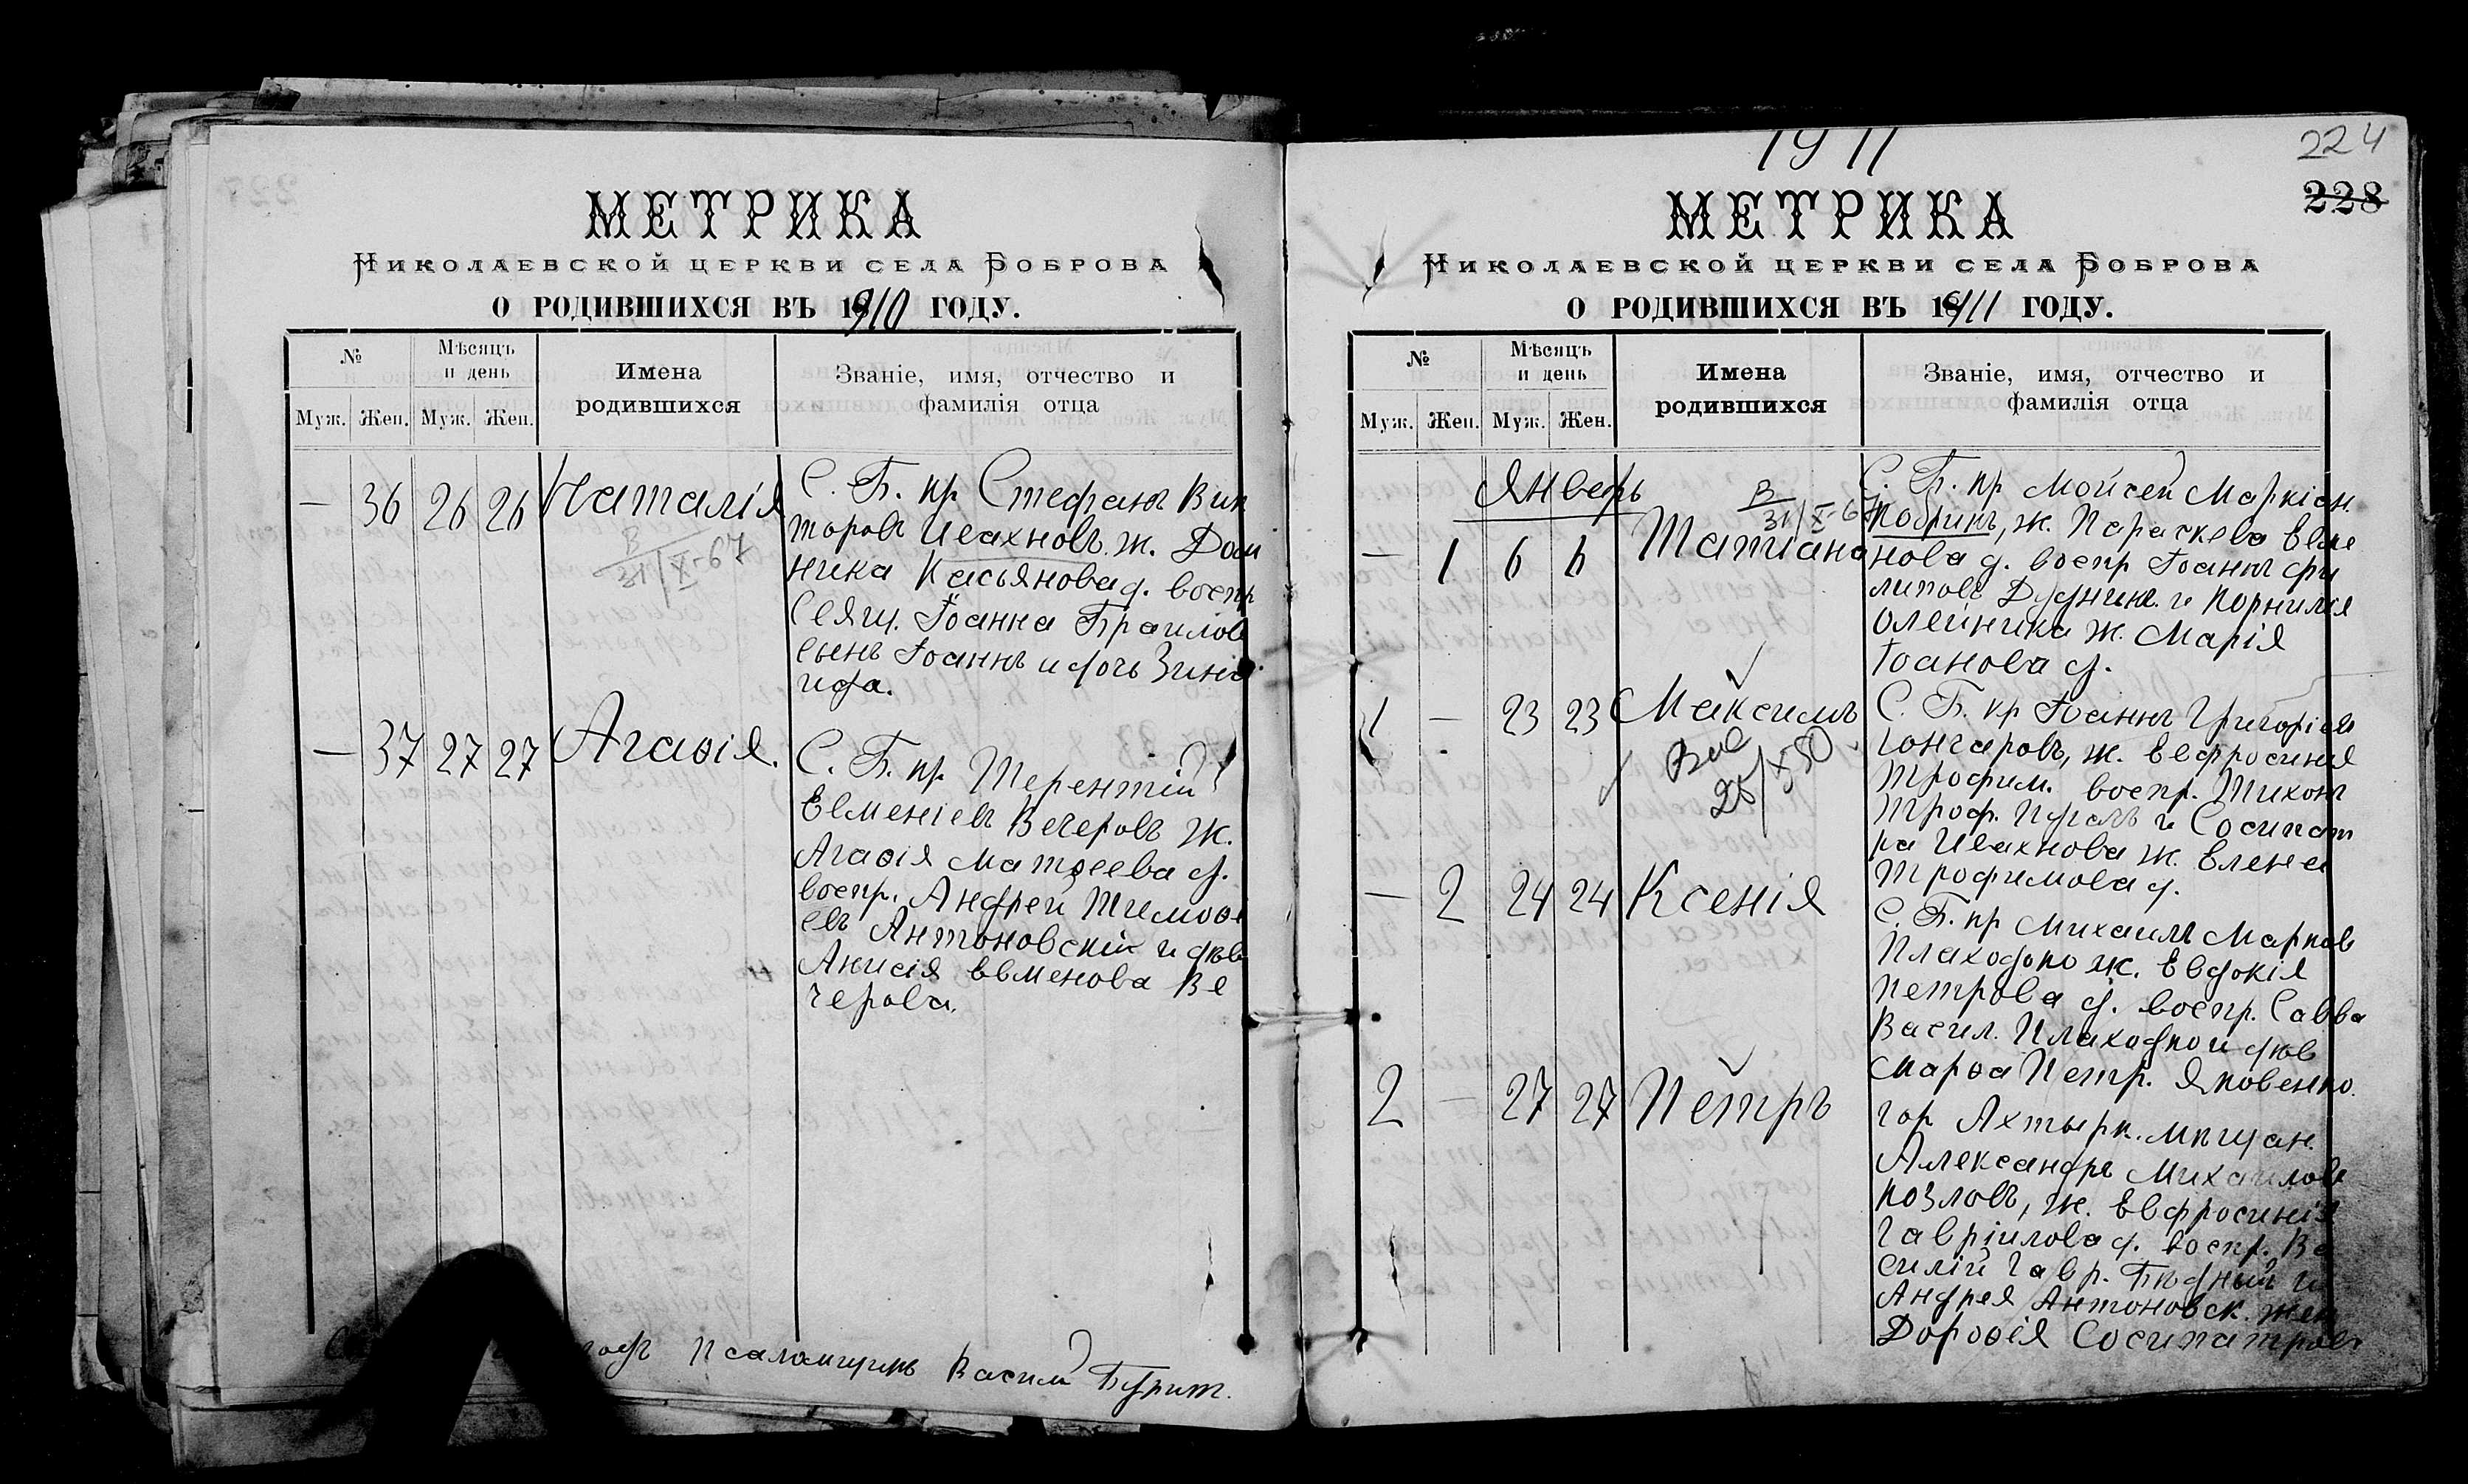 МЕТРИКА
Николаевской церкви села Боброва
О РОДИВШИХСЯ ВЪ 1910 ГОДУ.
№
Мѣсяцъ и день
Имена родившихся
Званіе, имя, отчество и фамилія отца
Муж. Жен. Муж. Жен.
— 36 26 26 Наталія
В 31/X-67
С. Б. кр Стефанъ Вик
торовъ Исахновъ ж. Дом
ника Касьянова д. воспр
Свящ. Іоанна Браилов
сынъ Іоаннъ и дочь Зина
ида.
— 37 27 27 Агаѳія.
С. Б. кр. Терентій
Евменіевъ Вечеровъ ж.
Агаѳія Матѳеева д.
воспр. Андрей Тимоѳе
евъ Антоновскій и дѣв
Анисія Евменова Ве
черова.
Псаломщикъ Васили
1911
224
228
МЕТРИКА
Николаевской церкви села Боброва
О РОДИВШИХСЯ ВЪ 1911 ГОДУ.
№
Мѣсяцъ и день
Имена родившихся
Званіе, имя, отчество и фамилія отца
Муж. Жен. Муж. Жен.
Январь
— 1 6 6 Татіана
В 31/X-67
С. Б. кр Мойсей Маркіан.
Кобринъ, ж. Параскева Евме
нова д. воспр Іоаннъ Фи
липовъ Дудник. и Корнилія
Олейника ж. Марія
Іоанова д.
1 — 23 23 Максимъ
26/X 50
С. Б. кр Іоаннъ Григоріев
Гончаровъ, ж. Евфросинія
Трофим. воспр. Тихонъ
Троф. и Сосипат
ра Исахнова ж. Елена
Трофимова д.
— 2 24 24 Ксенія
С. Б. кр Михаилъ Марков
Плаходко ж. Евдокія
Петрова д. воспр. Савва
Васил. Плаходко и дѣв
Марѳа Петр. Яковенко.
2 — 27 27 Петръ
гор Ахтырк. мѣщан.
Александръ Михаилов
Козловъ, ж. Евфросинія
Гавріилова д. воспр. Ва
силій Гавр. Бѣдный и
Андрея Антоновск. жен
Дороѳія Сосипатров